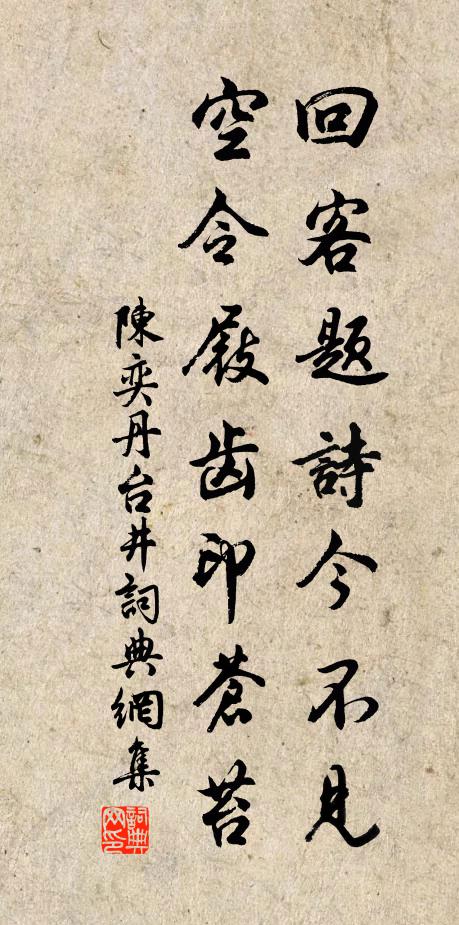 回客题詩今不見
空令屐齿印蒼苔
陳奕丹台井詞典網集
詞典网印